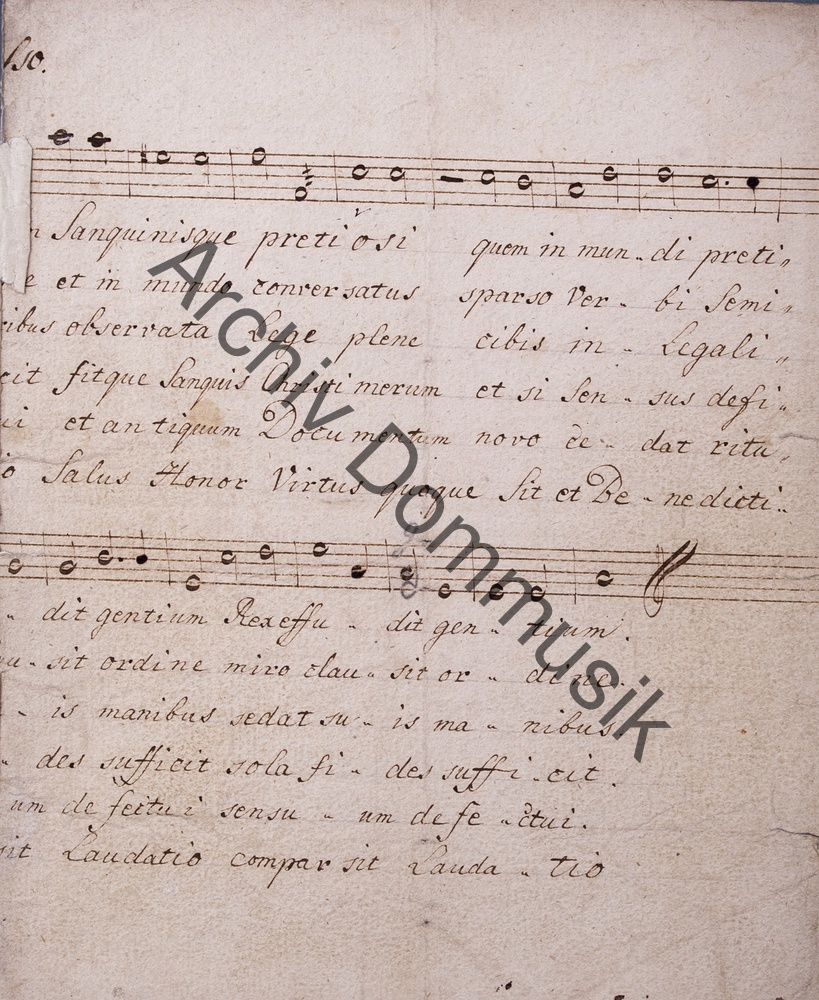 Sanquinisque preti o si quem in mun - di preti,,
e et in mundo conversatus sparso Ver - bi Semi,,
ribus observata Lege plene cibis in - Legali,,
cit fitque Sanquis Christi merum et si Sen - sus defi -
ui et an tiquum Documentum novo ce - dat ritu,,
o Salus Honor Virtus quoque Sit et Be - nedicti -
- dit gentium Rex effu - dit gen - tium.
u - sit ordine miro clau - sit or - dine.
- is manibus sedat su - is ma - nibus.
- des sufficit sola fi - des suffi - cit.
um defectui sensu - um defe - ctui.
sit Laudatio compar sit Lauda - tio
Archiv Dommusik